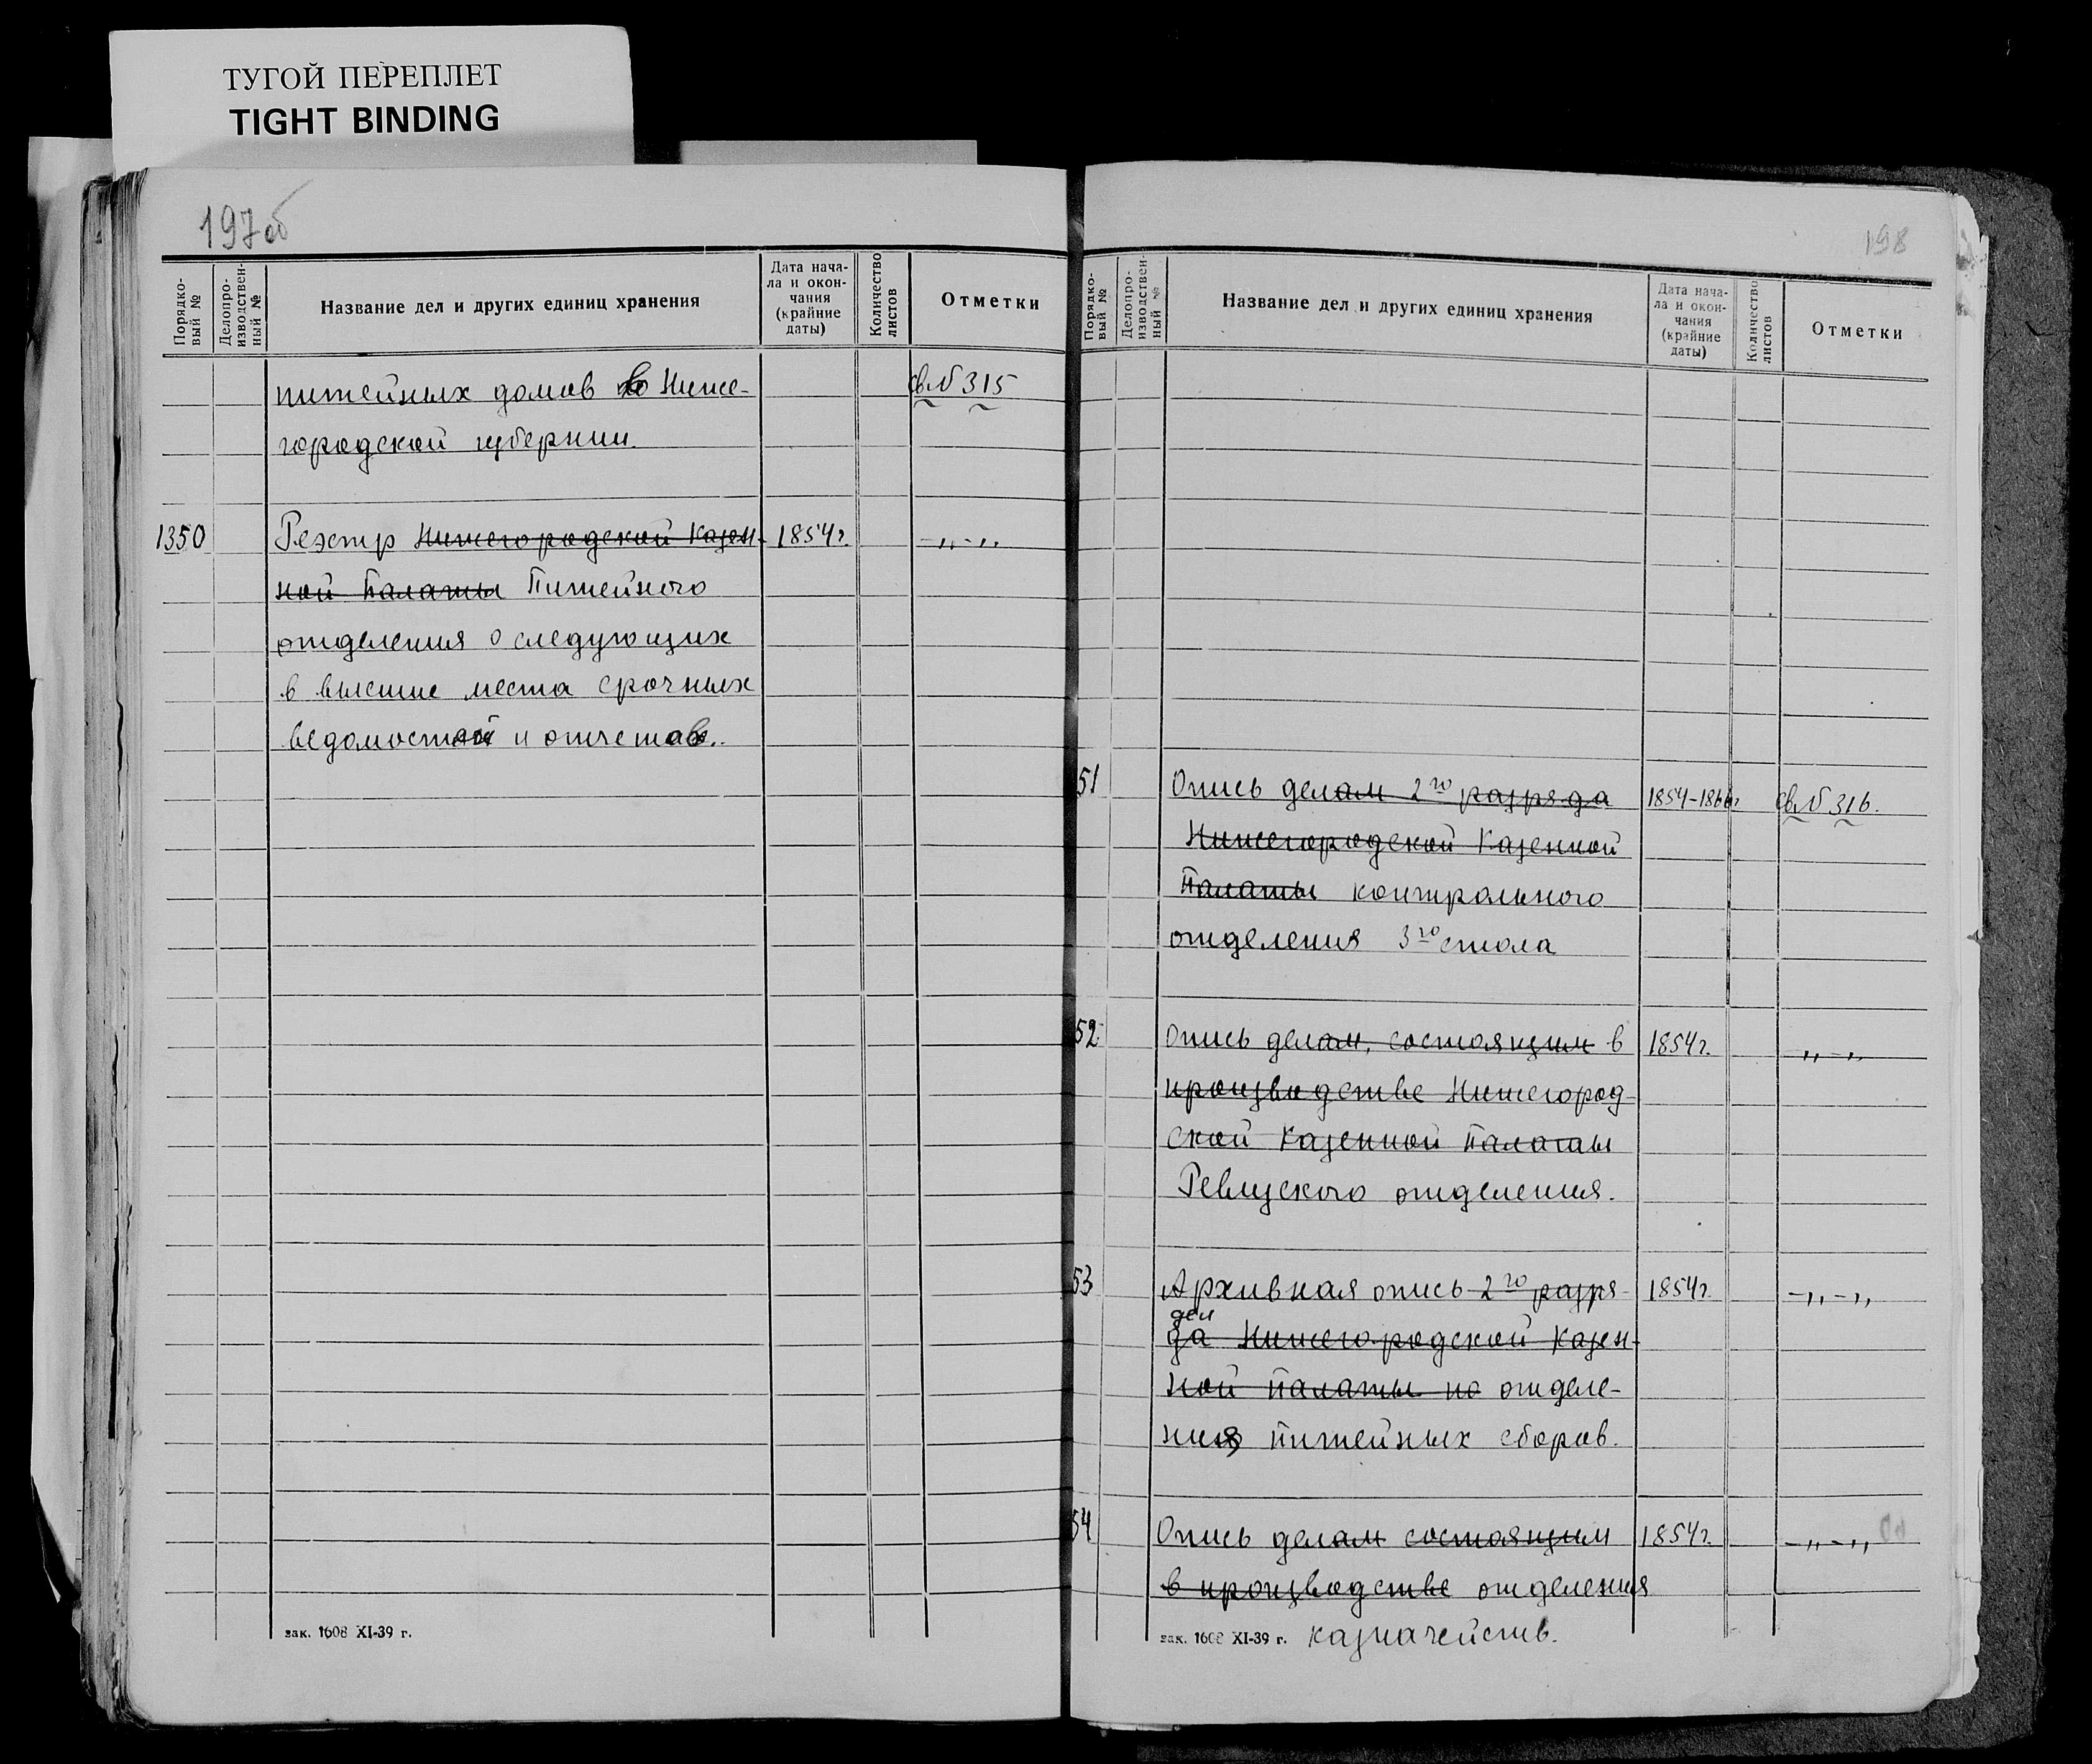 ТУГОЙ ПЕРЕПЛЕТ
TIGHT BINDING
197об
Порядковый №
Делопроизводственный №
Название дел и других единиц хранения
Дата начала и окончания (крайние даты)
Количество листов
Отметки
питейных домов в Ниже- св.N 315
городской губернии.
1350 Реэстр Нижегородской Казен- 1854г. -„-„
ной Палаты Питейного
отделения о следующих
в высшие места срочных
ведомостей и отчетов.
зак. 1608 XI-39 г.
198
Порядковый №
Делопроизводственный №
Название дел и других единиц хранения
Дата начала и окончания (крайние даты)
Количество листов
Отметки
51 Опись делам 2го разряда 1854-1866г св.N 316.
Нижегородской Казенной
Палаты контрольного
отделения 3го стола
52 Опись делам, состоящим в 1854г. -„-„
производстве Нижегород-
ской Казенной Палаты
Ревизского отделения.
53 Архивная опись 2го разря- 1854г. -„-„
дел
да Нижегородской Казен-
ной палаты по отделе-
ния питейных сборов.
54 Опись делам состоящим 1854г. -„-„
в производстве отделения
зак. 1608 XI-39 г. казначейств.